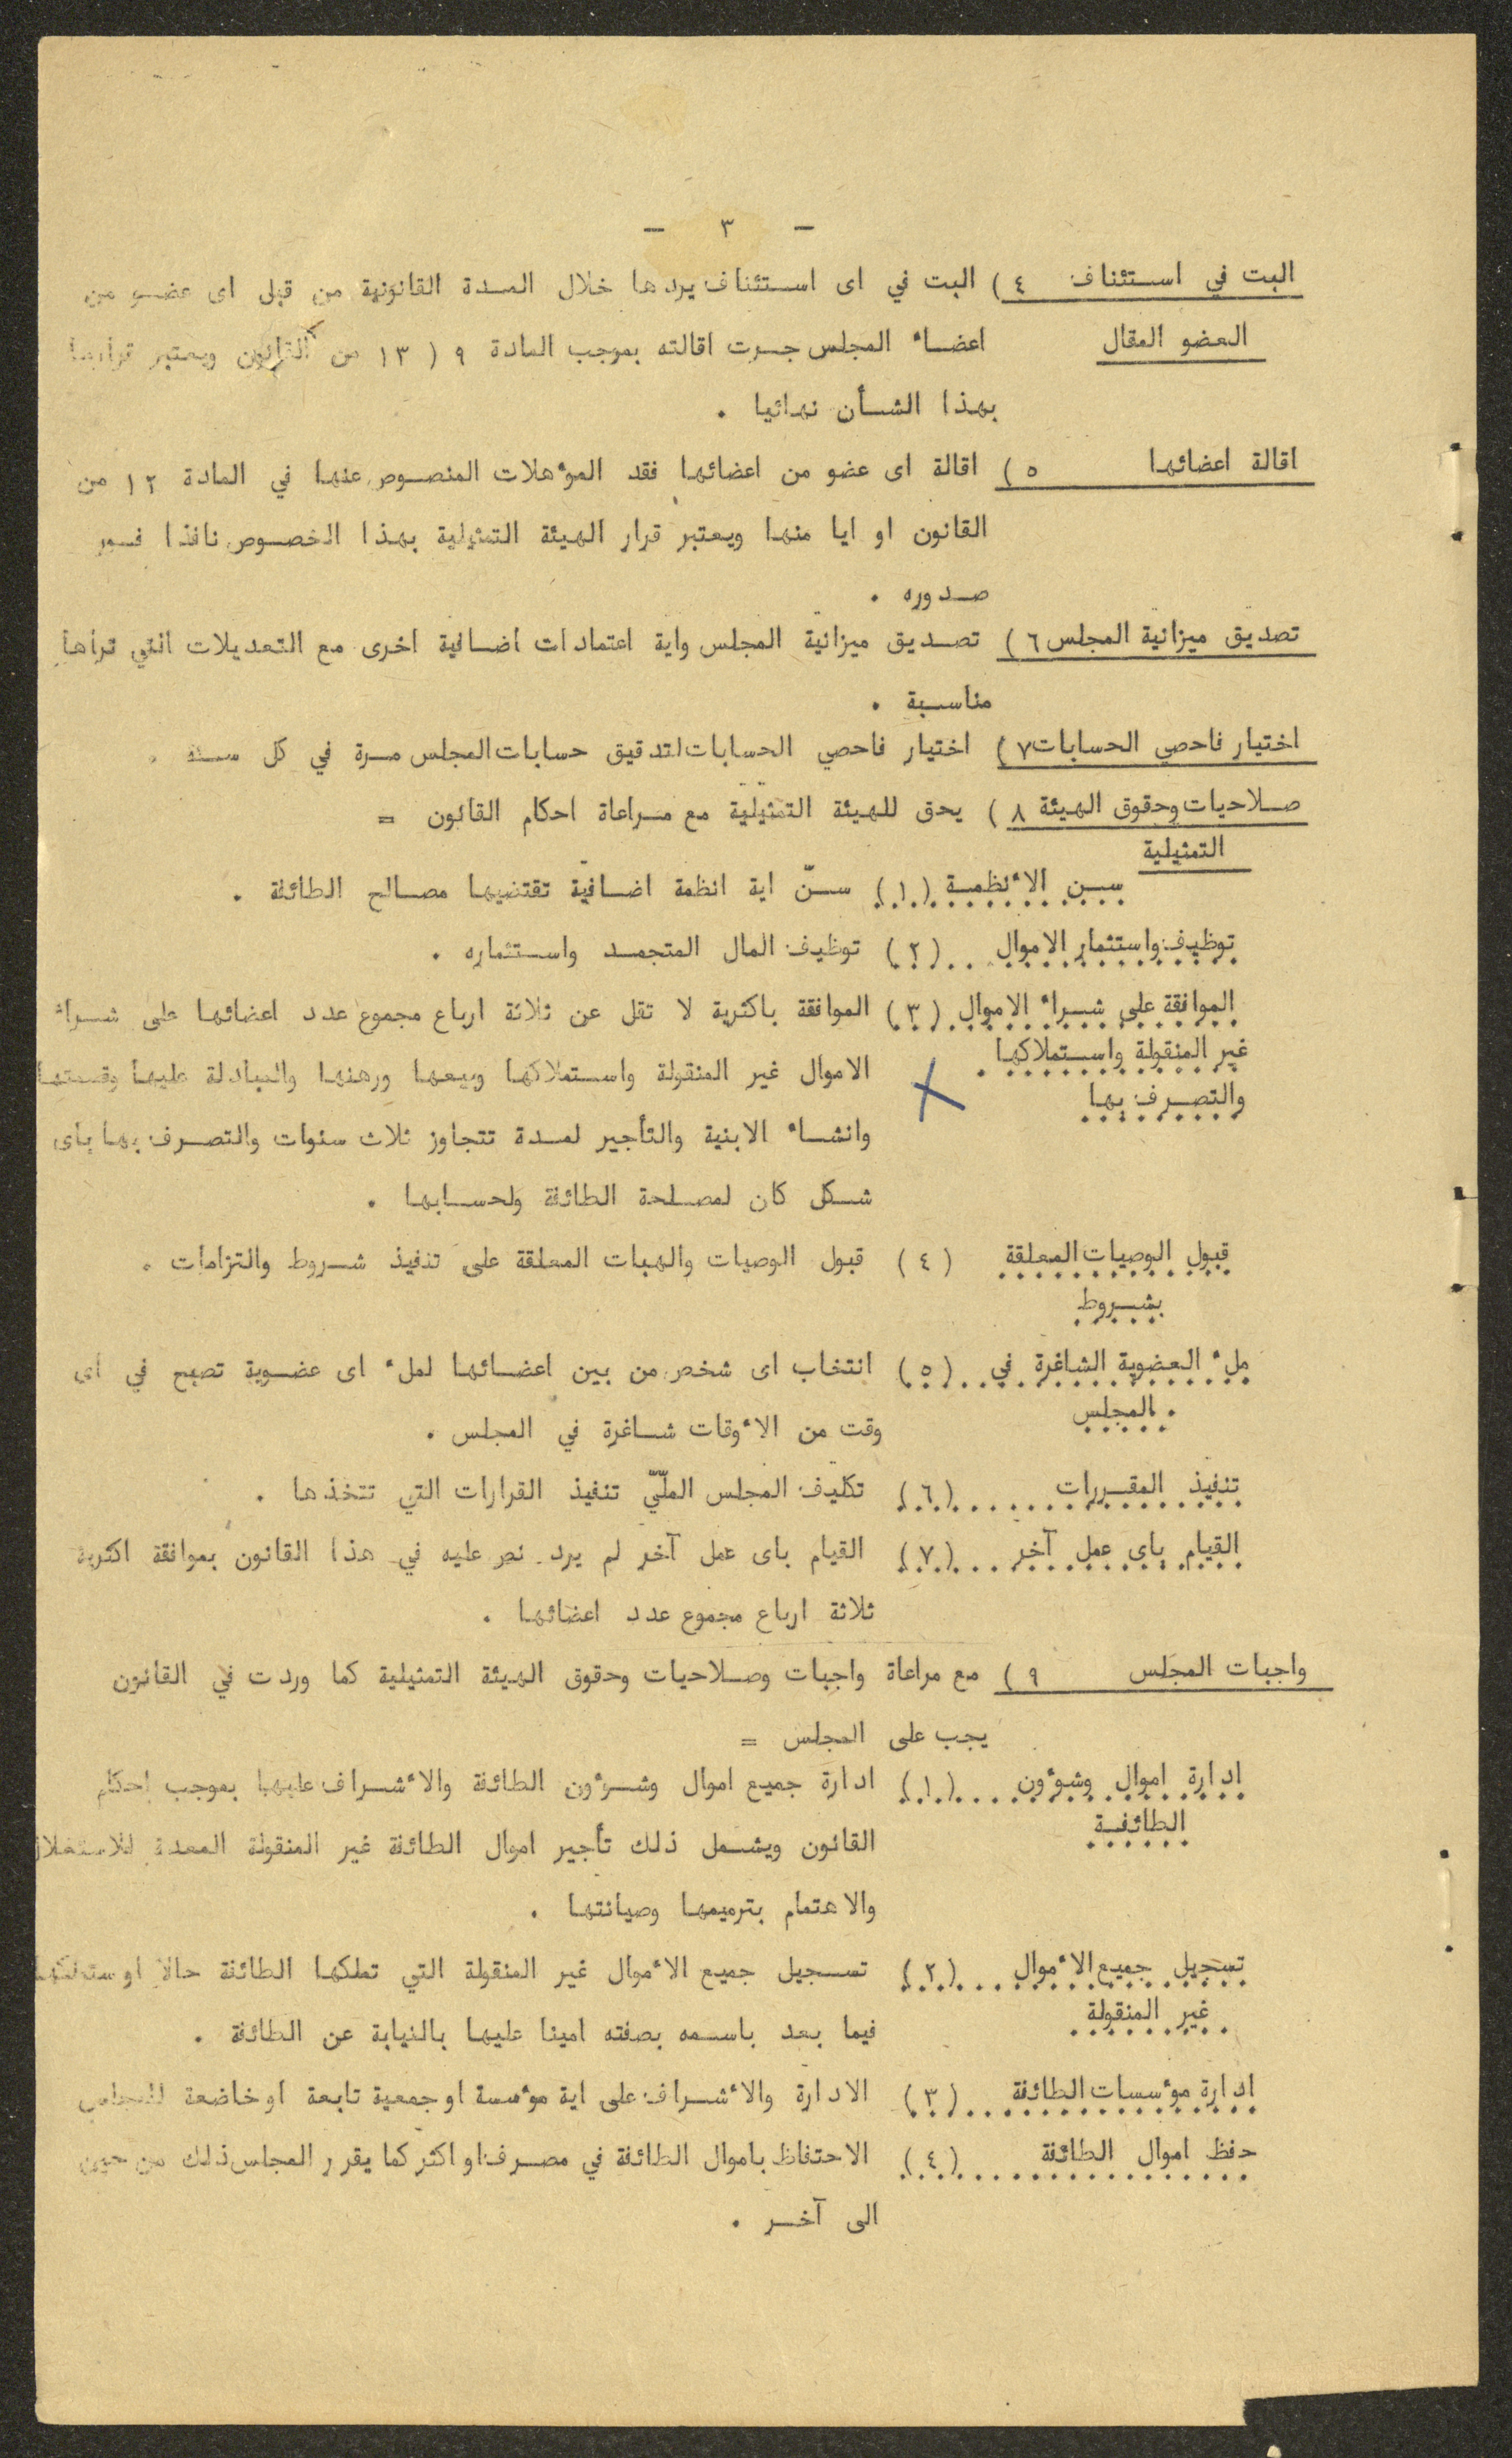 - ٣ -
البت في استئناف ٤ ) البت في اى استئناف يردها خلال المدة القانونية من قبل اى عضو من
العضو المقال اعضاء المجلس جرت اقالته بموجب المادة ٩ ( ١٣ من القانون ويعتبر قرارها
بهذا الشأن نهائيا .
اقالة اعضائها ٥ ) اقالة اى عضو من اعضائها فقد المؤهلات المنصوص عنها في المادة ١٢ من
القانون او ايا منها ويعتبر قرار الهيئة التمثيلية بهذا الخصوص نافذا فور
صدوره .
تصديق ميزانية المجلس ٦ ) تصديق ميزانية المجلس واية اعتمادات اضافية اخرى مع التعديلات التي تراها
مناسبة .
اختيار فاحصي الحسابات ٧ ) اختيار فاحصي الحسابات لتدقيق حسابات المجلس مرة في كل سنة .
صلاحيات وحقوق الهيئة ٨ ) يحق للهيئة التمثيلية مع مراعاة احكام القانون =
التمثيلية
سن الأنظمة (١) سنّ اية انظمة اضافية تقتضيها مصالح الطائفة .
توظيف واستثمار الاموال (٢) توظيف المال المتجمد واستثماره .
الموافقة على شراء الاموال (٣) الموافقة باكثرية لا تقل عن ثلاثة ارباع مجموع عدد اعضائها على شراء
غير المنقولة واستملاكها . الاموال غير المنقولة واستملاكها وبيعها ورهنها والمبادلة عليها وقسمتها
والتصرف بها وانشاء الابنية والتأجير لمدة تتجاوز ثلاث سنوات والتصرف بها باى
شكل كان لمصلحة الطائفة ولحسابها .
قبول الوصيات المعلقة (٤) قبول الوصيات والهبات المعلقة على تنفيذ شروط والتزامات .
بشروط
ملء العضوية الشاغرة في (٥) انتخاب اى شخص من بين اعضائها لملء اى عضوية تصبح في اى
المجلس . وقت من الأوقات شاغرة في المجلس .
تنفيذ المقررات (٦) تكليف المجلس الملّيّ تنفيذ القرارات التي تتخذها .
القيام باى عمل آخر (٧) القيام باى عمل آخر لم يرد نص عليه في هذا القانون بموافقة اكثرية
ثلاثة ارباع مجموع عدد اعضائها .
واجبات المجلس ٩ ) مع مراعاة واجبات وصلاحيات وحقوق الهيئة التمثيلية كما وردت في القانون
يجب على المجلس =
ادارة اموال وشؤون (١) ادارة جميع اموال وشؤون الطائفة والأشراف عليها بموجب احكام
الطائفية القانون ويشمل ذلك تأجير اموال الطائفة غير المنقولة المعدة للاستغلال
والاهتمام بترميمها وصيانتها .
تسجيل جميع الأموال (٢) تسجيل جميع الأموال غير المنقولة التي تملكها الطائفة حالا او ستملكها
غير المنقولة فيما بعد باسمه بصفته امينا عليها بالنيابة عن الطائفة .
ادارة مؤسسات الطائفة (٣) الادارة والأشراف على اية مؤسسة او جمعية تابعة او خاضعة للمجلس
حفظ اموال الطائفة (٤) الاحتفاظ باموال الطائفة في مصرف او اكثر كما يقرر المجلس ذلك من حين
الى آخر .